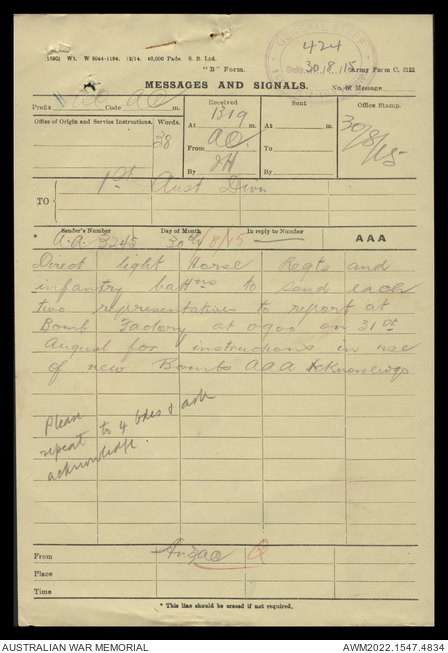 1380j Wt. W 8044—1184. 12/14. 40,000 Pads. S. B. Ltd.
"B" Form. Army Form C. 2122
MESSAGES AND SIGNALS. No. of Message
424
Date 30/8/15
Prefix Code AC m.
Received
Sent
Office Stamp.
Office of Origin and Service Instructions.
Words.
38
At 1319 m.
From AC
By
At m.
To
By
30/8/15
TO 1st Aust Divn
Sender's Number
Day of Month
In reply to Number
AAA
* A.A. 3245 30th /8/15
Direct light Horse Regts and
infantry battns to send each
two representatives to report at
Bomb Factory at 0900 on 31st
August for instructions in use
of new Bombs AAA Acknowledge
Please
repeat to 4 bdes & ask
acknowledge.
From Anzac
Place
Time
* This line should be erased if not required.
AUSTRALIAN WAR MEMORIAL AWM2022.1547.4834